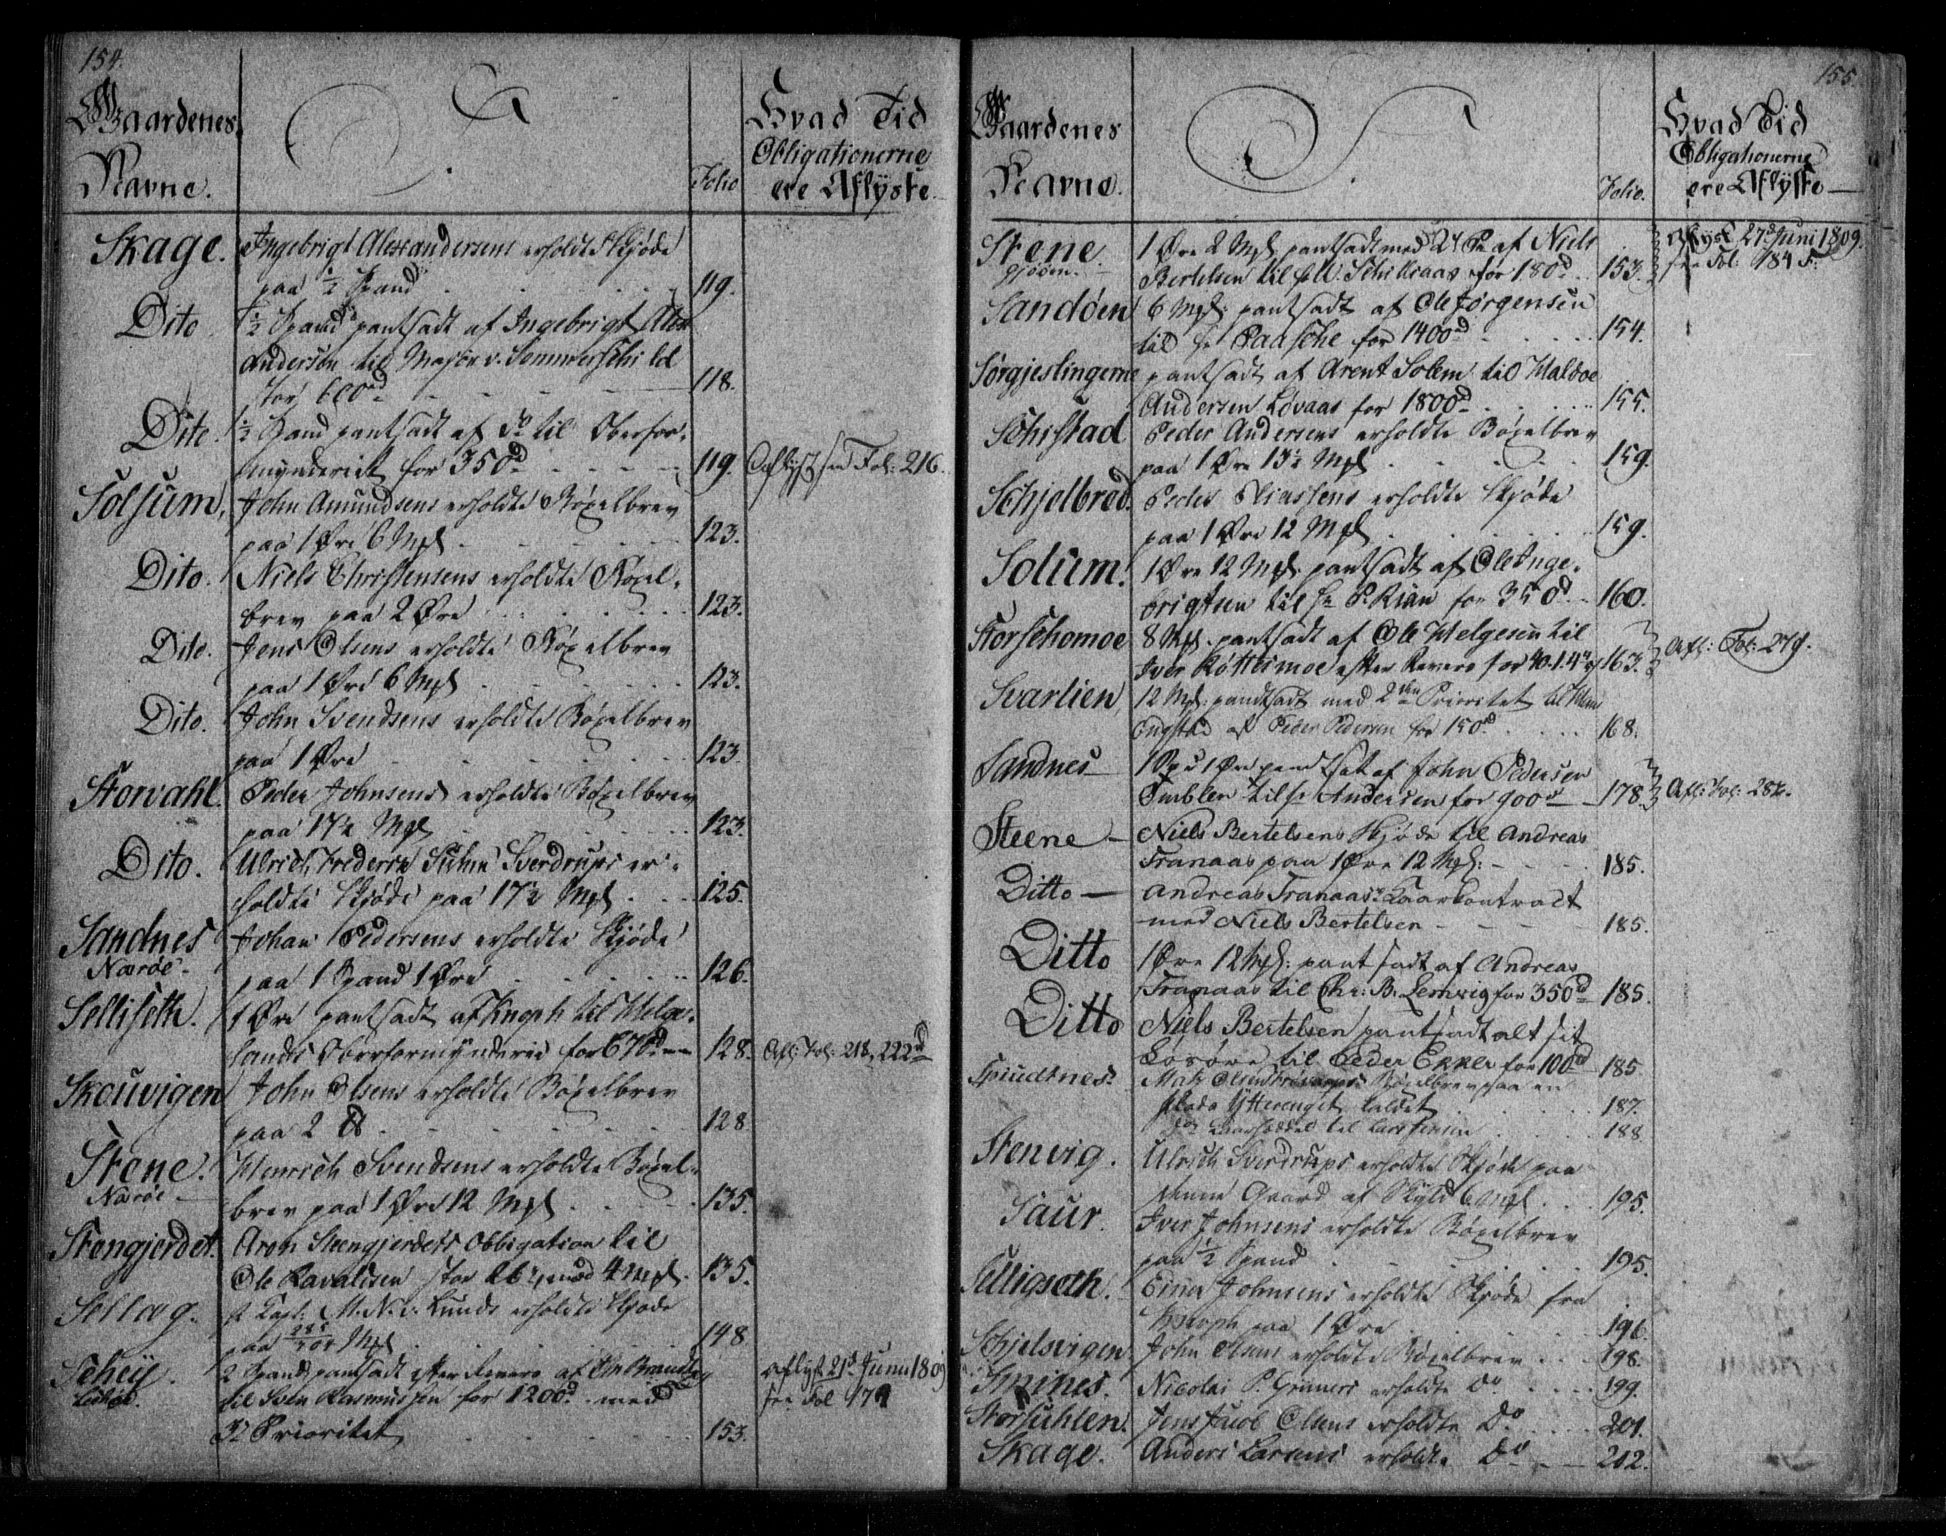 154.
Gaardenes
Navne.
S.
Folio
Hvad Tid
Obligationerne
ere Aflyste
Skage. Ingebrigt Alexandersens erholdte Skjøde
paa 1/2 Spand 119.
Dito 1/2 Spand pantsadt af Ingebrigt Alex
Andersen til Major v. Sommerschild
for 600d 118.
Dito. 1/2 Spand pantsadt af do til Oberfor-
mynderiet for 350d 119. Aflyst see Fol: 216.
Solsum, John Amundsens erholdte Bøxelbrev
paa 1 Øre 6 Mkl 123.
Dito. Niels Christensens erholdte Bøxel-
brev paa 2 Øre 123.
Dito. Jens Olsens erholdte Bøxelbrev
paa 1 Øre 6 Mkl 123.
Dito. John Svendsens erholdte Bøxelbrev
paa 1 Øre 123
Storvahl. Peder Johnsens erholdte Bøxelbrev
paa 17 1/2 Mkl 123.
Dito. Ulrich Frederich Suhm Sverdrups er-
holdte Skjøde paa 17 1/2 Mkl 125.
Sandnes Johan Pedersens erholdte Skjøde
Nærøe. paa 1 Spand 1 Øre 126.
Selliseth. 1 Øre pantsadt af Knoph til Helge-
lands Oberformynderie for 670d 128. Afl: Fol: 218, 222
Skouvigen John Olsens erholdte Bøxelbrev
paa 2 128
Stene. Henrich Svendsens erholdte Bøxel-
Nærøe brev paa 1 Øre 12 Mkl 135.
Stengjerdet. Aron Steengjerdets Obligation til
Ole Lavaldsen stor 26 mod 4 Mkl. 135.
Capt: M. N. v. Lunds erholdte Skjøde
paa Mkl 148
2 Spand pantsadt efter Revers af Brandt
til Sven Rasmussen for 1200d. med
3de Prioritet 153.
aflyst 21d Junii 1809
see Fol 179
155
Gaardenes
Navne.
S.
Folio.
Hvad Tid
Obligationerne
ere Aflyste
Stene 1 Øre 2 Mkl pantsadt med af Niels
Bertelsen til for 180d 153. Aflyst 27d Juni 1809.
see Fol: 184
Sandøen 6 Mkl: pantsadt af Ole Jørgensen
til Hr Paasche for 1400d 154.
Sørgjeslingerne pantsadt af Arent Solem til Haldoe
Andersen Løvaas for 1800d 155.
Sohlstad Peder Andersens erholdte Bøxelbrev
paa 1 Øre 13 1/2 Mkl 159.
Schjelbred. Peder Eliassens erholdte Skjøde
paa 1 Øre 12 Mkl 159.
Solum. 1 Øre 12 Mkl. pantsadt af Ole Inge-
brigtsen til Hr P. Rian for 350d 160.
Storsehomoe 8 Mkl. pantsadt af Ole Helgesen til
Iver Røttesmoe efter Revers for 40.1.4 163. Afl: Fol: 279.
Svarlien, 12 Mkl: pandtsadt med 2den Prioritet til
Engstad af Peder Pedersen for 150d 168.
Sandnes 1 Sp 1 Øre pandtsat af John Pedersen
til Hr Andersen for 900d 178. Afl: Fol: 282.
Steene Niels Bertelsens Skjøde til Andreas
Tranaas paa 1 Øre 12 Mkl: 185.
Ditto Andreas Tranaas: Kaarkontract
med Niels Bertelsen 185.
Ditto 1 Øre 12 Mkl: pantsadt af Andreas
Tranaas til Chr: B. Lemvig for 350d 185.
Ditto Niels Bertelsen pantsadt alt sit
Løsøre til Peder Ekker for 100d 185
Spiudtnes. Bøxelbrev paa en
Plads Ytterenget kaldet 187.
188
Stenvig. Ulrich Sverdrups erholdte Skjøde paa
denne Gaard af Skyld 6 Mkl 195.
Saur. Iver Johnsens erholdte Bøxelbrev
paa 1/2 Spand 195.
Selligseth. Einer Johnsens erholdte Skjøde fra
Knoph paa 1 Øre 196.
Schjelvigen John Olsens erholdte Bøxelbrev 198.
Smines. Nicolai P. Grüners erholdte Do 199.
Storsuhlen. Jens Jacob Olsens erholdte Do 201.
Skage. Anders Larsens erholdte Do 202.